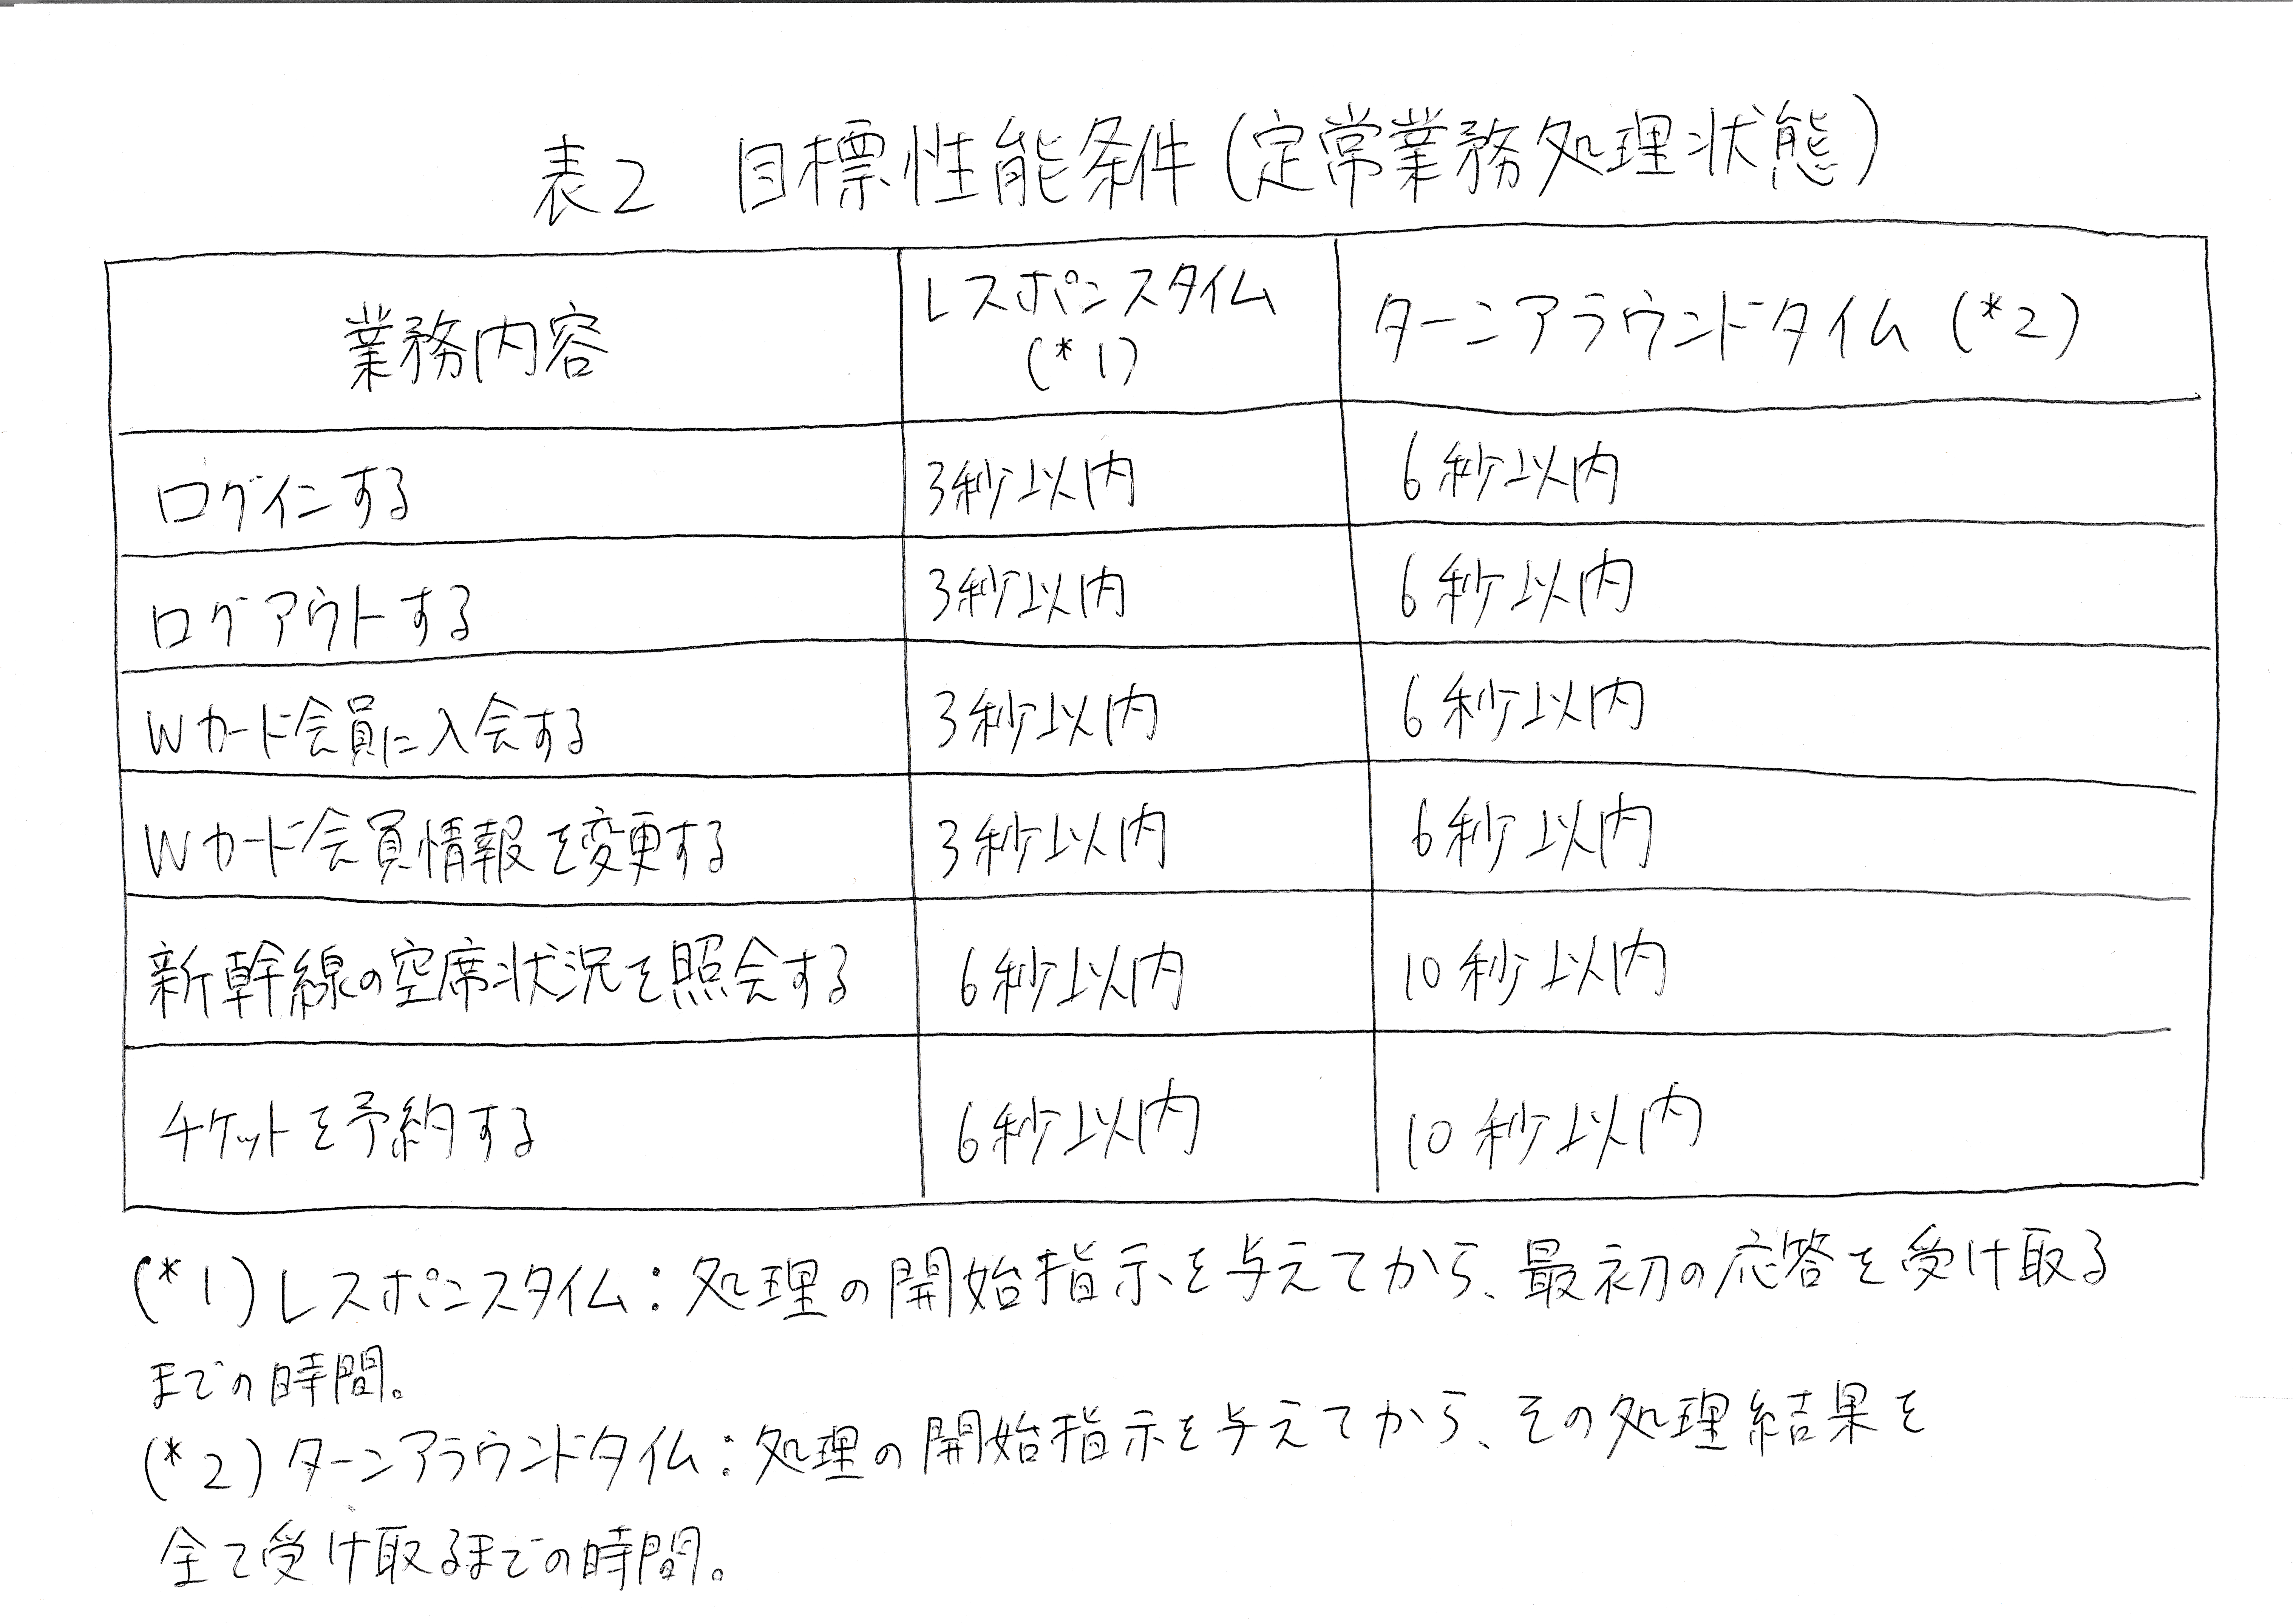 表2 目標性能条件(定常業務処理状態)
業務内容 レスポンスタイム(*1) ターンアラウンドタイム(*2)
ログインする 3秒以内 6秒以内
ログアウトする 3秒以内 6秒以内
Wカード会員に入会する 3秒以内 6秒以内
Wカード会員情報を変更する 3秒以内 6秒以内
新幹線の空席状況を照会する 6秒以内 10秒以内
チケットを予約する 6秒以内 10秒以内
(*1)レスポンスタイム:処理の開始指示を与えてから、最初の応答を受け取る
までの時間。
(*2)ターンアラウンドタイム:処理の開始指示を与えてから、その処理結果を
全て受け取るまでの時間。